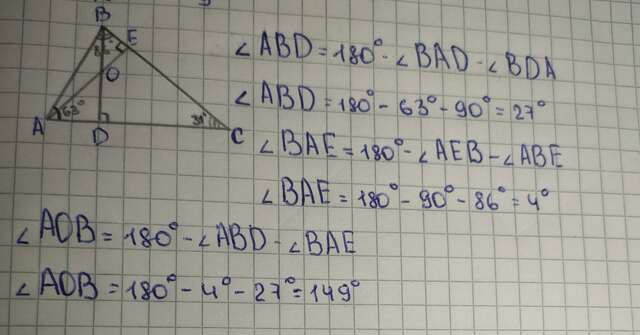 B
E
O
63°
31°
A
D
C
∠ABD = 180° - ∠BAD - ∠BDA
∠ABD = 180° - 63° - 90° = 27°
∠BAE = 180° - ∠AEB - ∠ABE
∠BAE = 180° - 90° - 86° = 4°
∠AOB = 180° - ∠ABD - ∠BAE
∠AOB = 180° - 4° - 27° = 149°